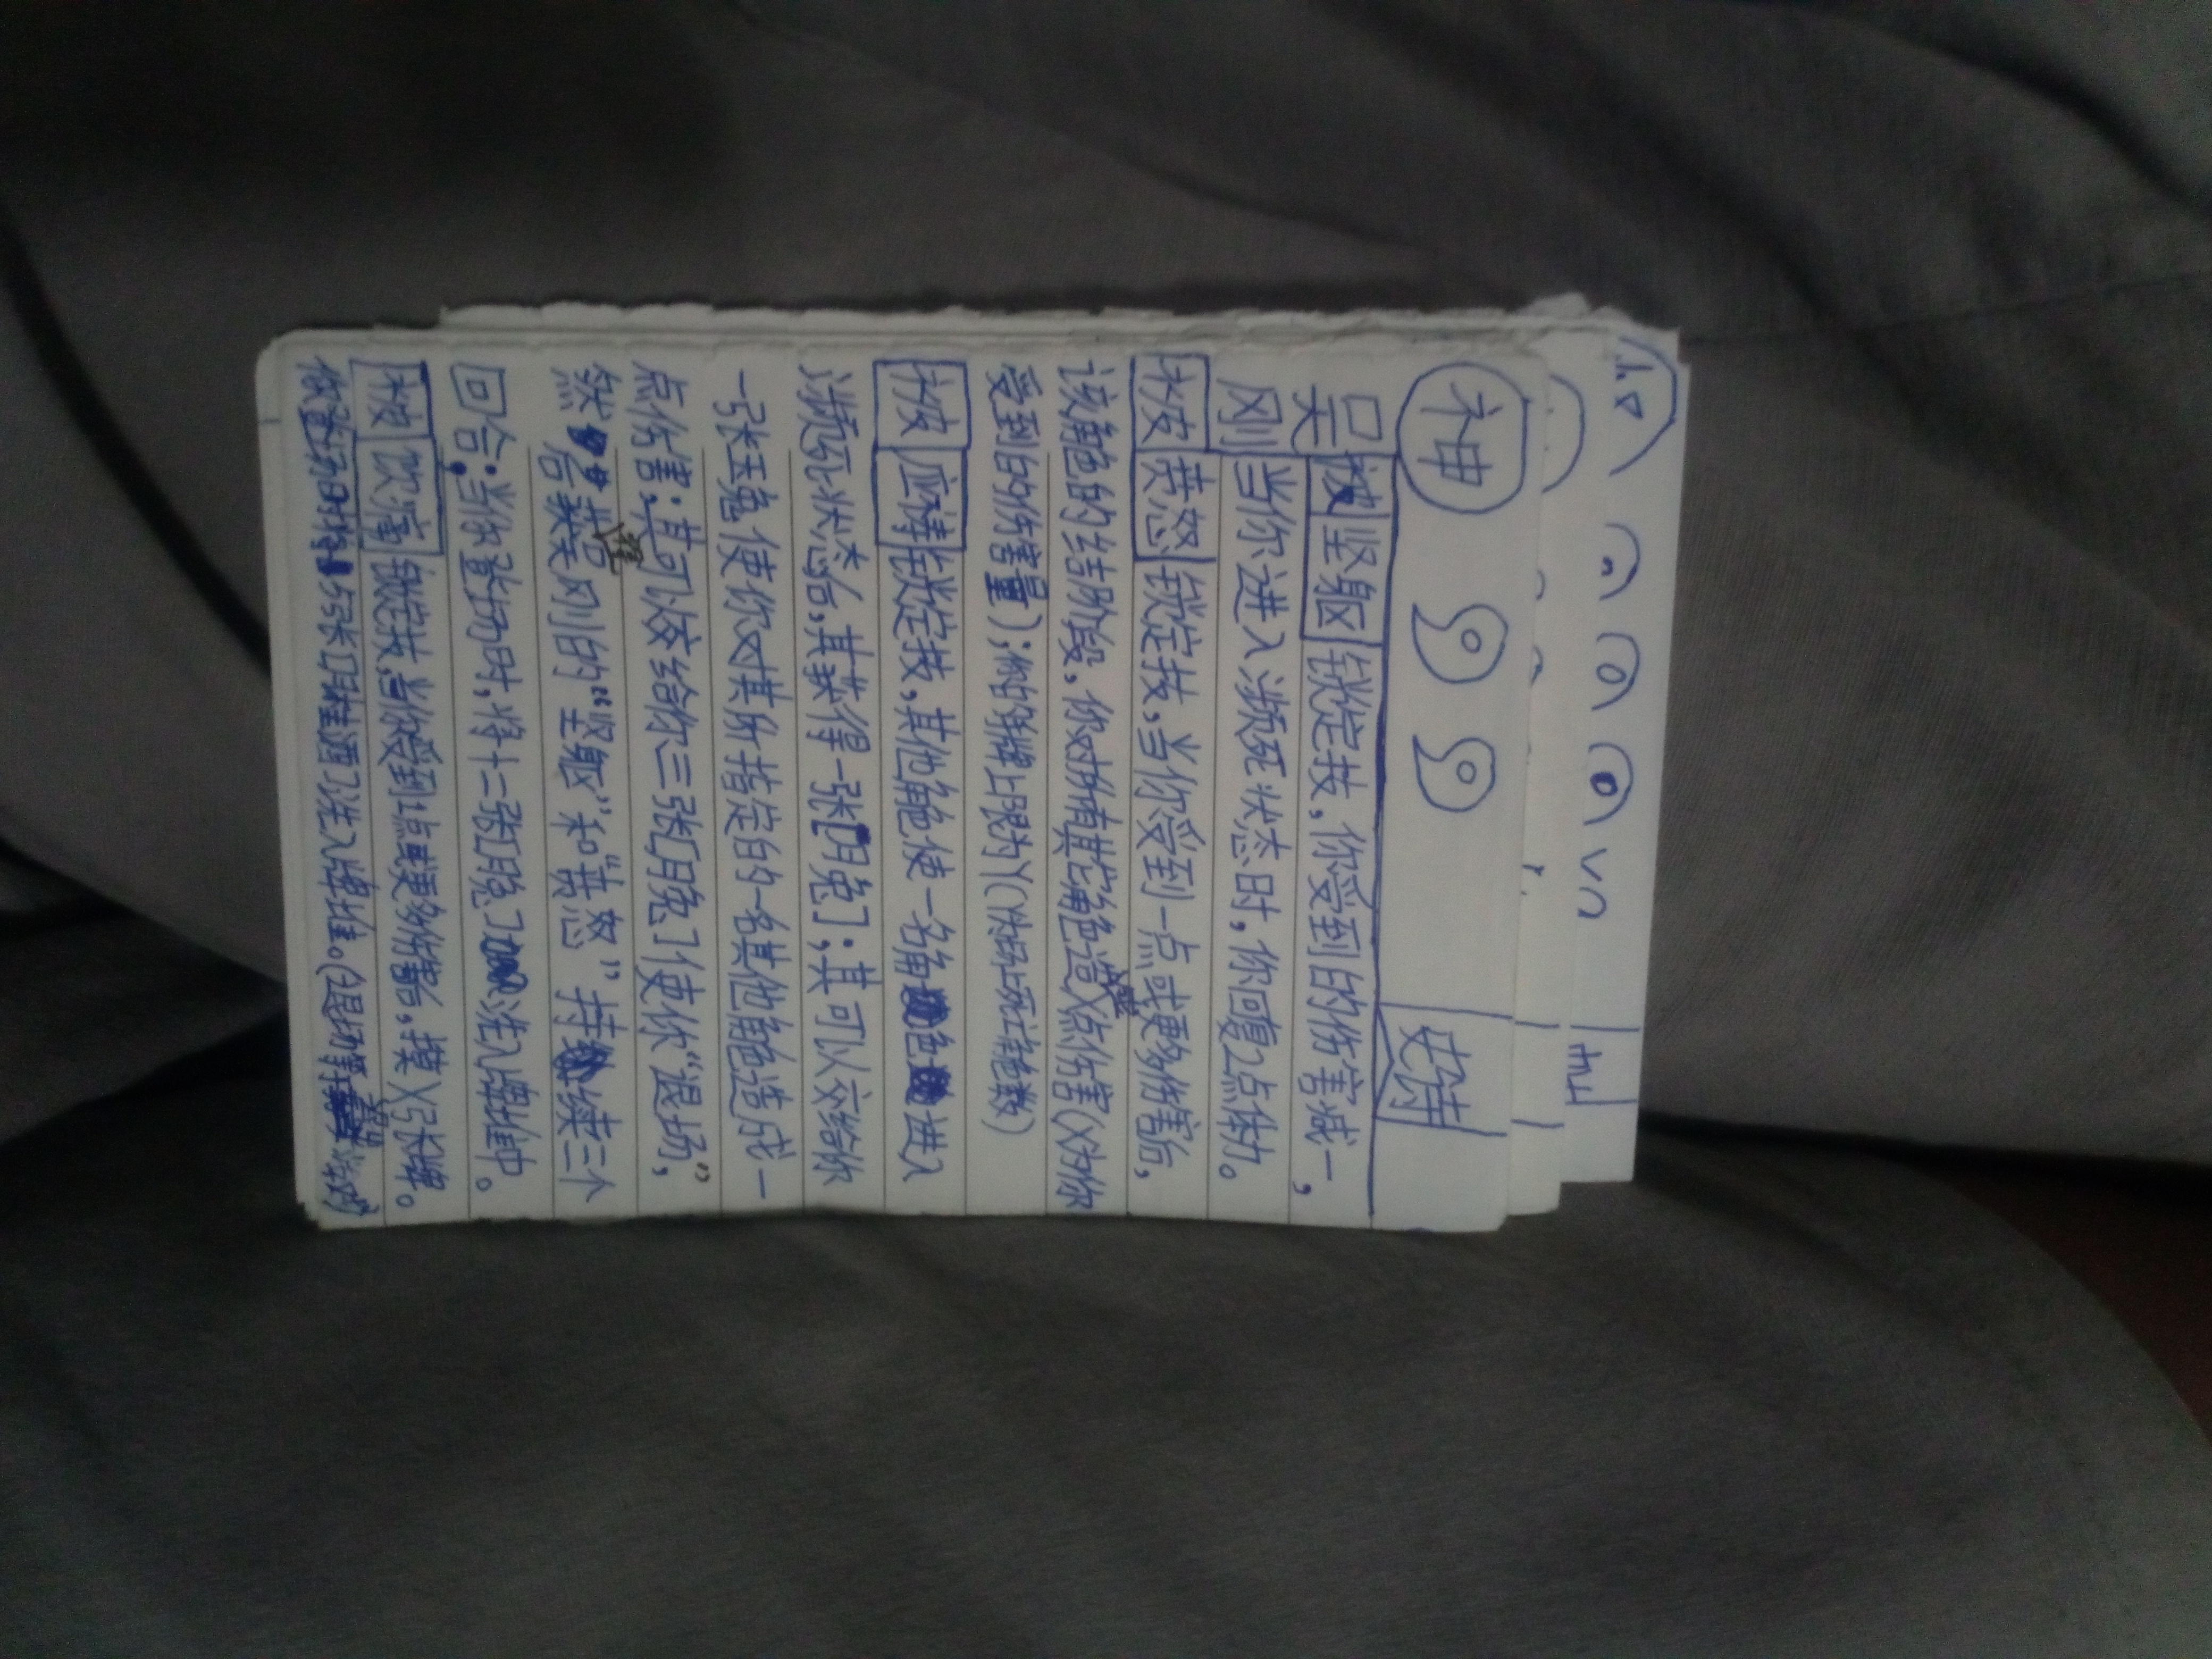 神 史诗
吴刚
被 坚躯 锁定技，你受到的伤害减一，
当你进入濒死状态时，你回复2点体力。
被 愤怒 锁定技，当你受到一点或更多伤害后，
该角色的结阶段，你对所有其他角色造X点伤害（X为你
受到的伤害量）；你的手牌上限为Y（Y为场上死亡角色数）
被 应祷 锁定技，其他角色使一名角色进入
濒死状态后，其获得一张[月兔]；其可以交给你
一张玉兔使你对其所指定的一名其他角色造成一
点伤害；其可以交给你三张[月兔]使你“退场”，
然后获 吴刚的“坚躯”和“愤怒”持续三个
回合；当你登场时，将十二张[月兔]洗入牌堆中。
被 饮 锁定技，当你受到1点或更多伤害后，摸X张牌。
你登场时将5张[月桂酒]洗入牌堆。（退场